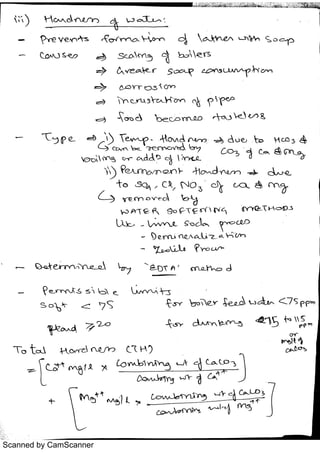 iii) Hardness of water:
- Prevents formation of lather with soap
- Causes ⇒ Scaling of boilers
⇒ Greater soap consumption
⇒ corrosion
⇒ incrustation of pipes
⇒ food becomes tasteless
- Type ⇒ i) Temp. Hardness ⇒ due to HCO3 &
↳ can be removed by CO3 of Ca & mg
boiling or addn of lime
ii) Permanent Hardness ⇒ due
to SO4, Cl, NO3 of ca & mg
↳ removed by
WATER SOFTENING METHODS
like - Lime Soda process
- Demineralization
- Zeolite Process
- Determined by 'EDTA' method
- Permissible limits
Soft < 75 for boiler feed water <75ppm
Hard ≥ 20 for drinking 75 to 115 ppm
or mg/l of CaCO3
Total Hardness (TH)
= [Ca++ mg/l x Combining wt of CaCO3 / Combining wt of Ca++]
+ [Mg++ mg/l x Combining wt of CaCO3 / Combining wt of Mg++]
Scanned by CamScanner